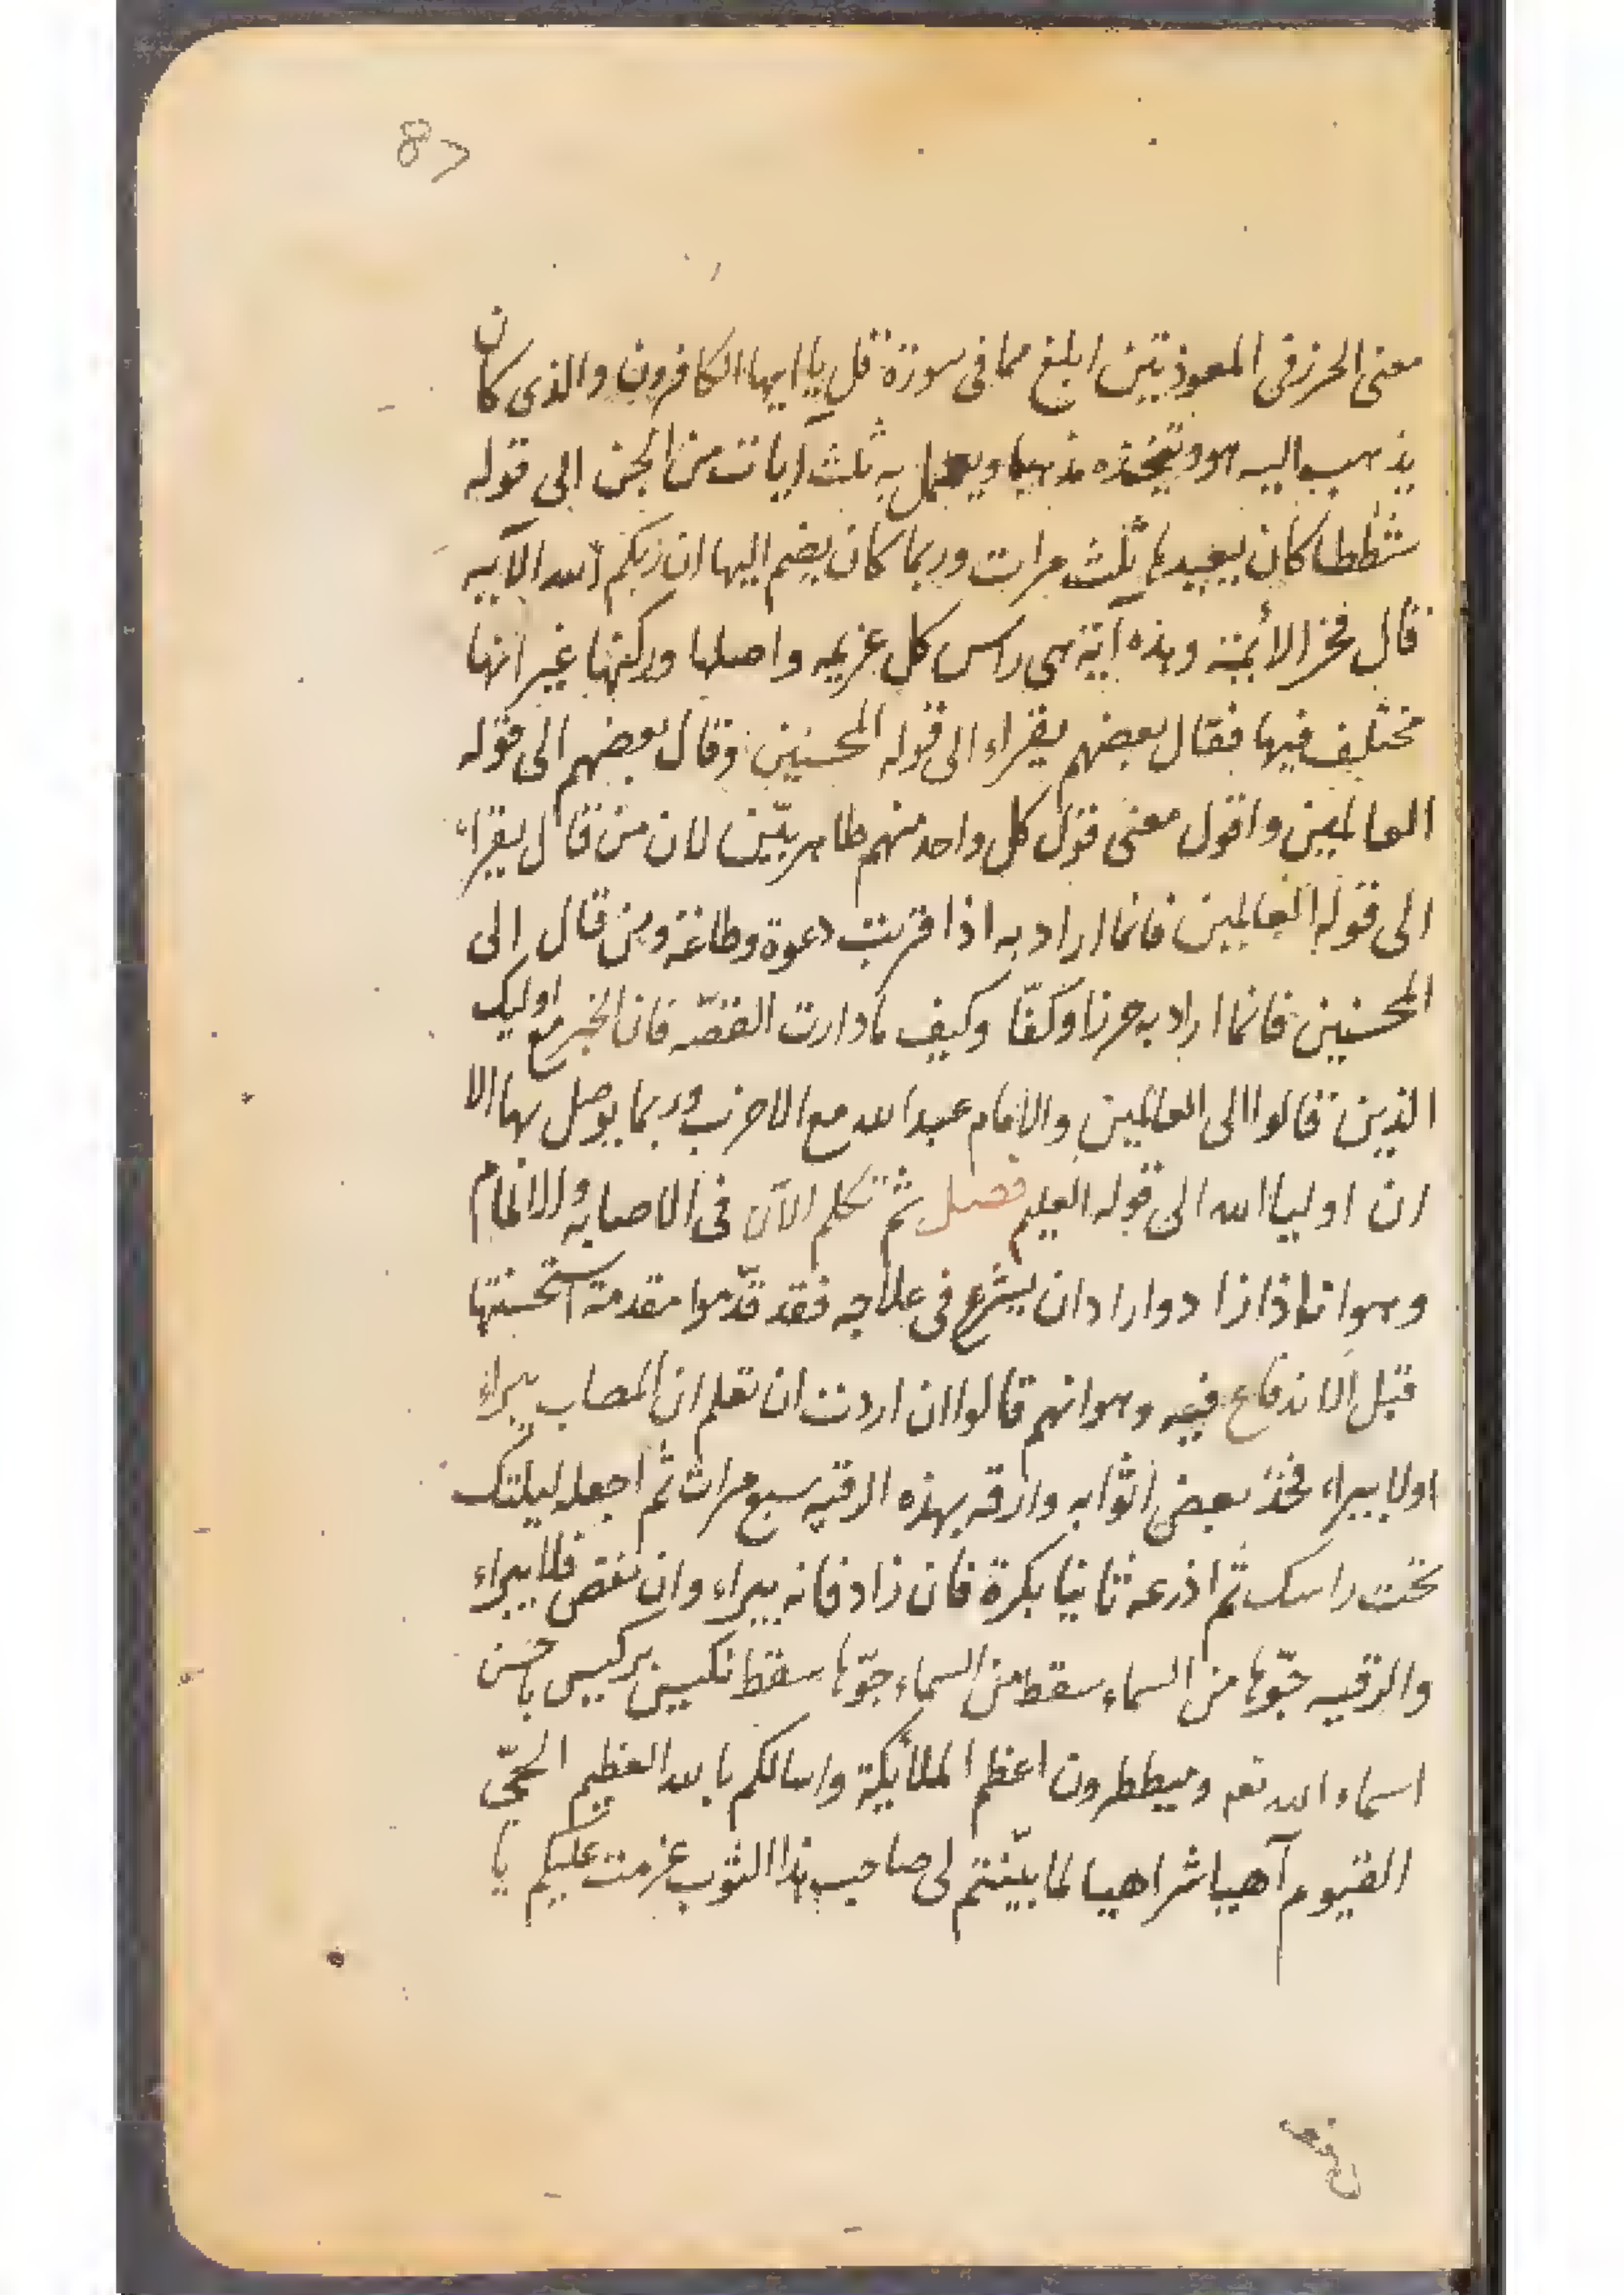 87
معنى الحرز فى المعوذتين ابلغ مما فى سورة قل يا ايها الكافرون والذى كان
يذهب اليه هو ويتخذه مذهبا ويعمل به ثلث آيات من الجن الى قوله
شططا كان يعيدها ثلث مرات وربما كان يضم اليها ان ربكم الله الآيه
قال فخر الائمة وهذه آية هى راس كل عزيمه واصلها وركنها غير انها
مختلف فيها فقال بعضهم يقراء الى قوله المحسنين وقال بعضهم الى قوله
العالمين واقول معنى قول كل واحد منهم ظاهر بيّن لان من قال يقراء
الى قوله العالمين فانما اراد به اذا قربت دعوة وطاعة ومن قال الى
المحسنين فانما اراد به حرزا وكفّا وكيف ما دارت القصّه فان الخبر مع اوليك
الذين قالوا الى العالمين والامام عبد الله مع الاحزب وربما يوصل بها الا
ان اوليا الله الى قوله العليم فصل ثم تكلم الآن فى الاصابه والالمام
وهوانا اذا اراد ان يشرع فى علاجه فقد قدّموا مقدمة استحسنتها
قبل الاندفاع فيه وهو انهم قالوا ان اردت ان تعلم ان المصاب يبراء
اولا يبراء فخذ بعض اثوابه وارقه بهذه الرقيه سبع مرات ثم اجعله ليلتك
تحت راسك ثم اذرعه ثانيا بكرة فان زاد فانه يبراء وان نقص فلا يبراء
والرقيه جبّوها من السماء سقط من السماء جوّها سقط نكيس بركيس باحسن
اسماء الله تعه وميططرون اعظم الملائكة واسالكم بالله العظيم الحىّ
القيوم آهيا شراهيا لما بيّنتم لى صاحب هذا الثوب عزمت عليكم يا